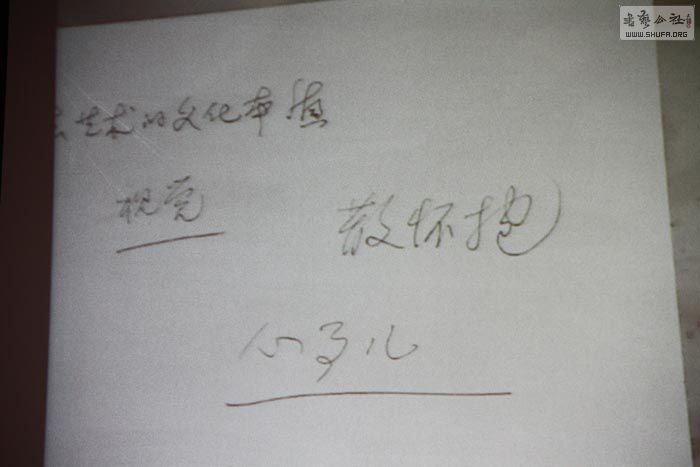 書藝公社
WWW.SHUFA.ORG
艺术的文化本
视觉
散怀抱
心 儿